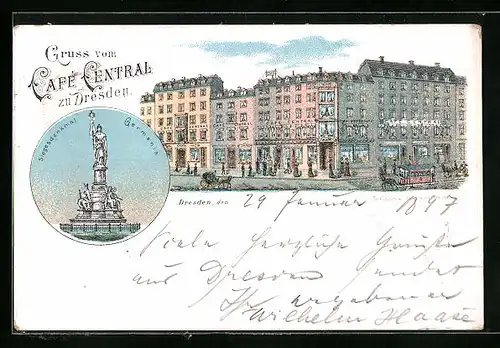 Gruss vom
CAFÉ CENTRAL
zu Dresden.
Siegesdenkmal Germania
Dresden, den 29 Januar 1897
Viele herzliche Grüße
aus Dresden sendet
Ihr ergebener
Wilhelm Haase